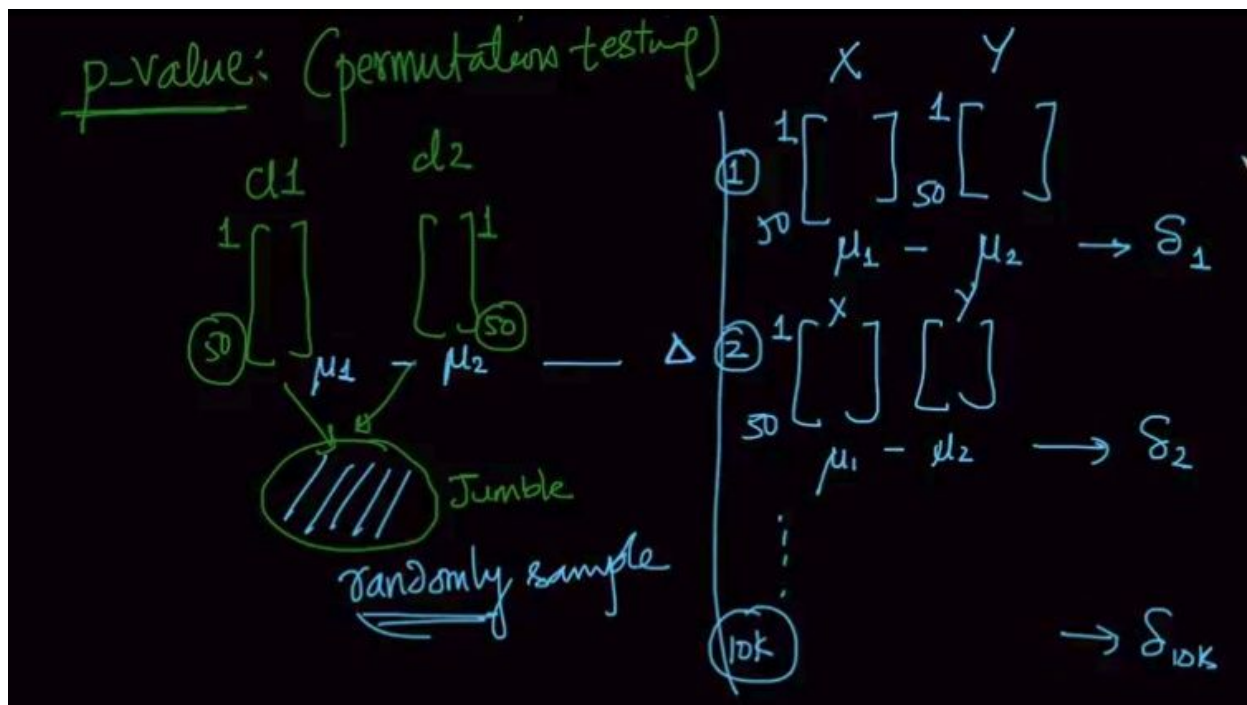 p-value: (permutation testing)
d1 d2
1 1
50 50
μ1 - μ2 — Δ
Jumble
randomly sample
X Y
1 1 1
50 50
μ1 - μ2 → δ1
X Y
2 1
50
μ1 - μ2 → δ2
10K → δ10K